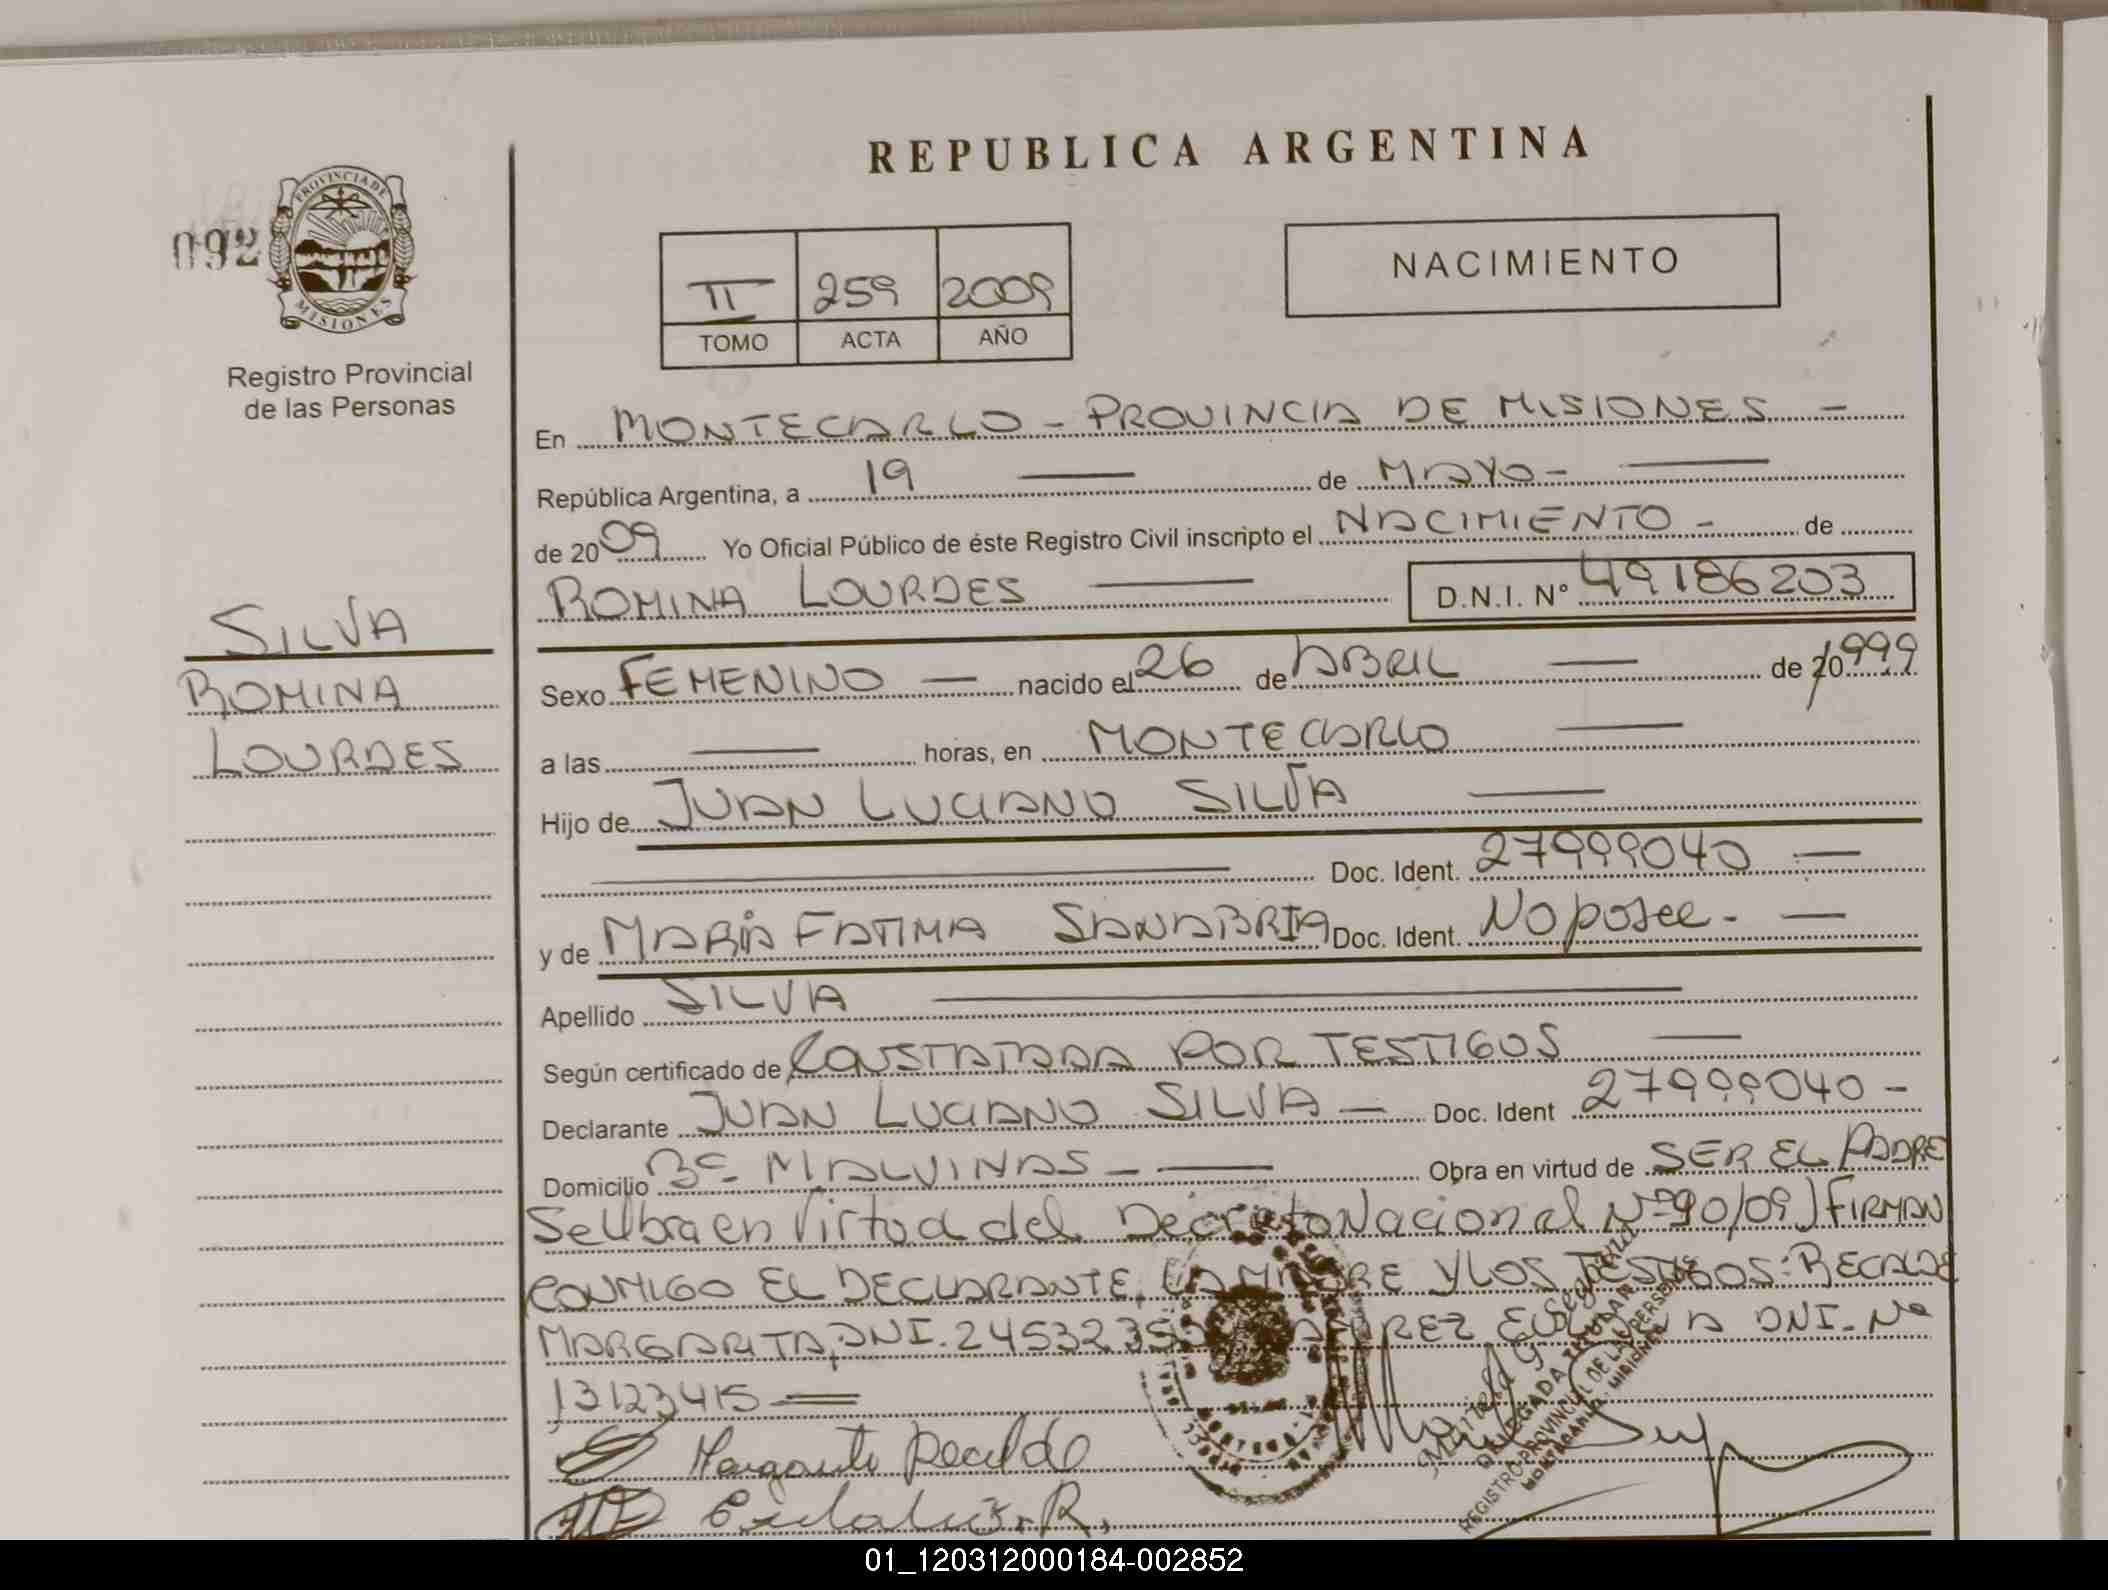 REPUBLICA ARGENTINA
092
PROVINCIA DE
MISIONES
Registro Provincial
de las Personas
II 259 2009
TOMO ACTA AÑO
NACIMIENTO
En MONTECARLO - PROVINCIA DE MISIONES -
República Argentina, a 19 — de MAYO - —
de 2009 Yo Oficial Público de éste Registro Civil inscripto el NACIMIENTO - de
ROMINA LOURDES — D.N.I. Nº 49186203
SILVA
ROMINA
LOURDES
Sexo FEMENINO — nacido el 26 de ABRIL — de 1999
a las — horas, en MONTECARLO —
Hijo de JUAN LUCIANO SILVA —
— Doc. Ident. 27999040 —
y de MARIA FATIMA SANABRIA Doc. Ident. No posee - —
Apellido SILVA —
Según certificado de CONSTATADA POR TESTIGOS —
Declarante JUAN LUCIANO SILVA — Doc. Ident 27999040 -
Domicilio Bº MALVINAS - — Obra en virtud de SER EL PADRE
Se Obra en Virtud del Decreto Nacional Nº 90/09) FIRMAN
CONMIGO EL DECLARANTE, LA MADRE Y LOS TESTIGOS: RECALDE
MARGARITA, DNI. 24532 DNI. Nº
13123415 =
Margarita Recalde
Eulalia R.
DELEGADA TITULAR
REGISTRO PROVINCIAL DE LAS PERSONAS
MONTECARLO - MISIONES
01_120312000184-002852